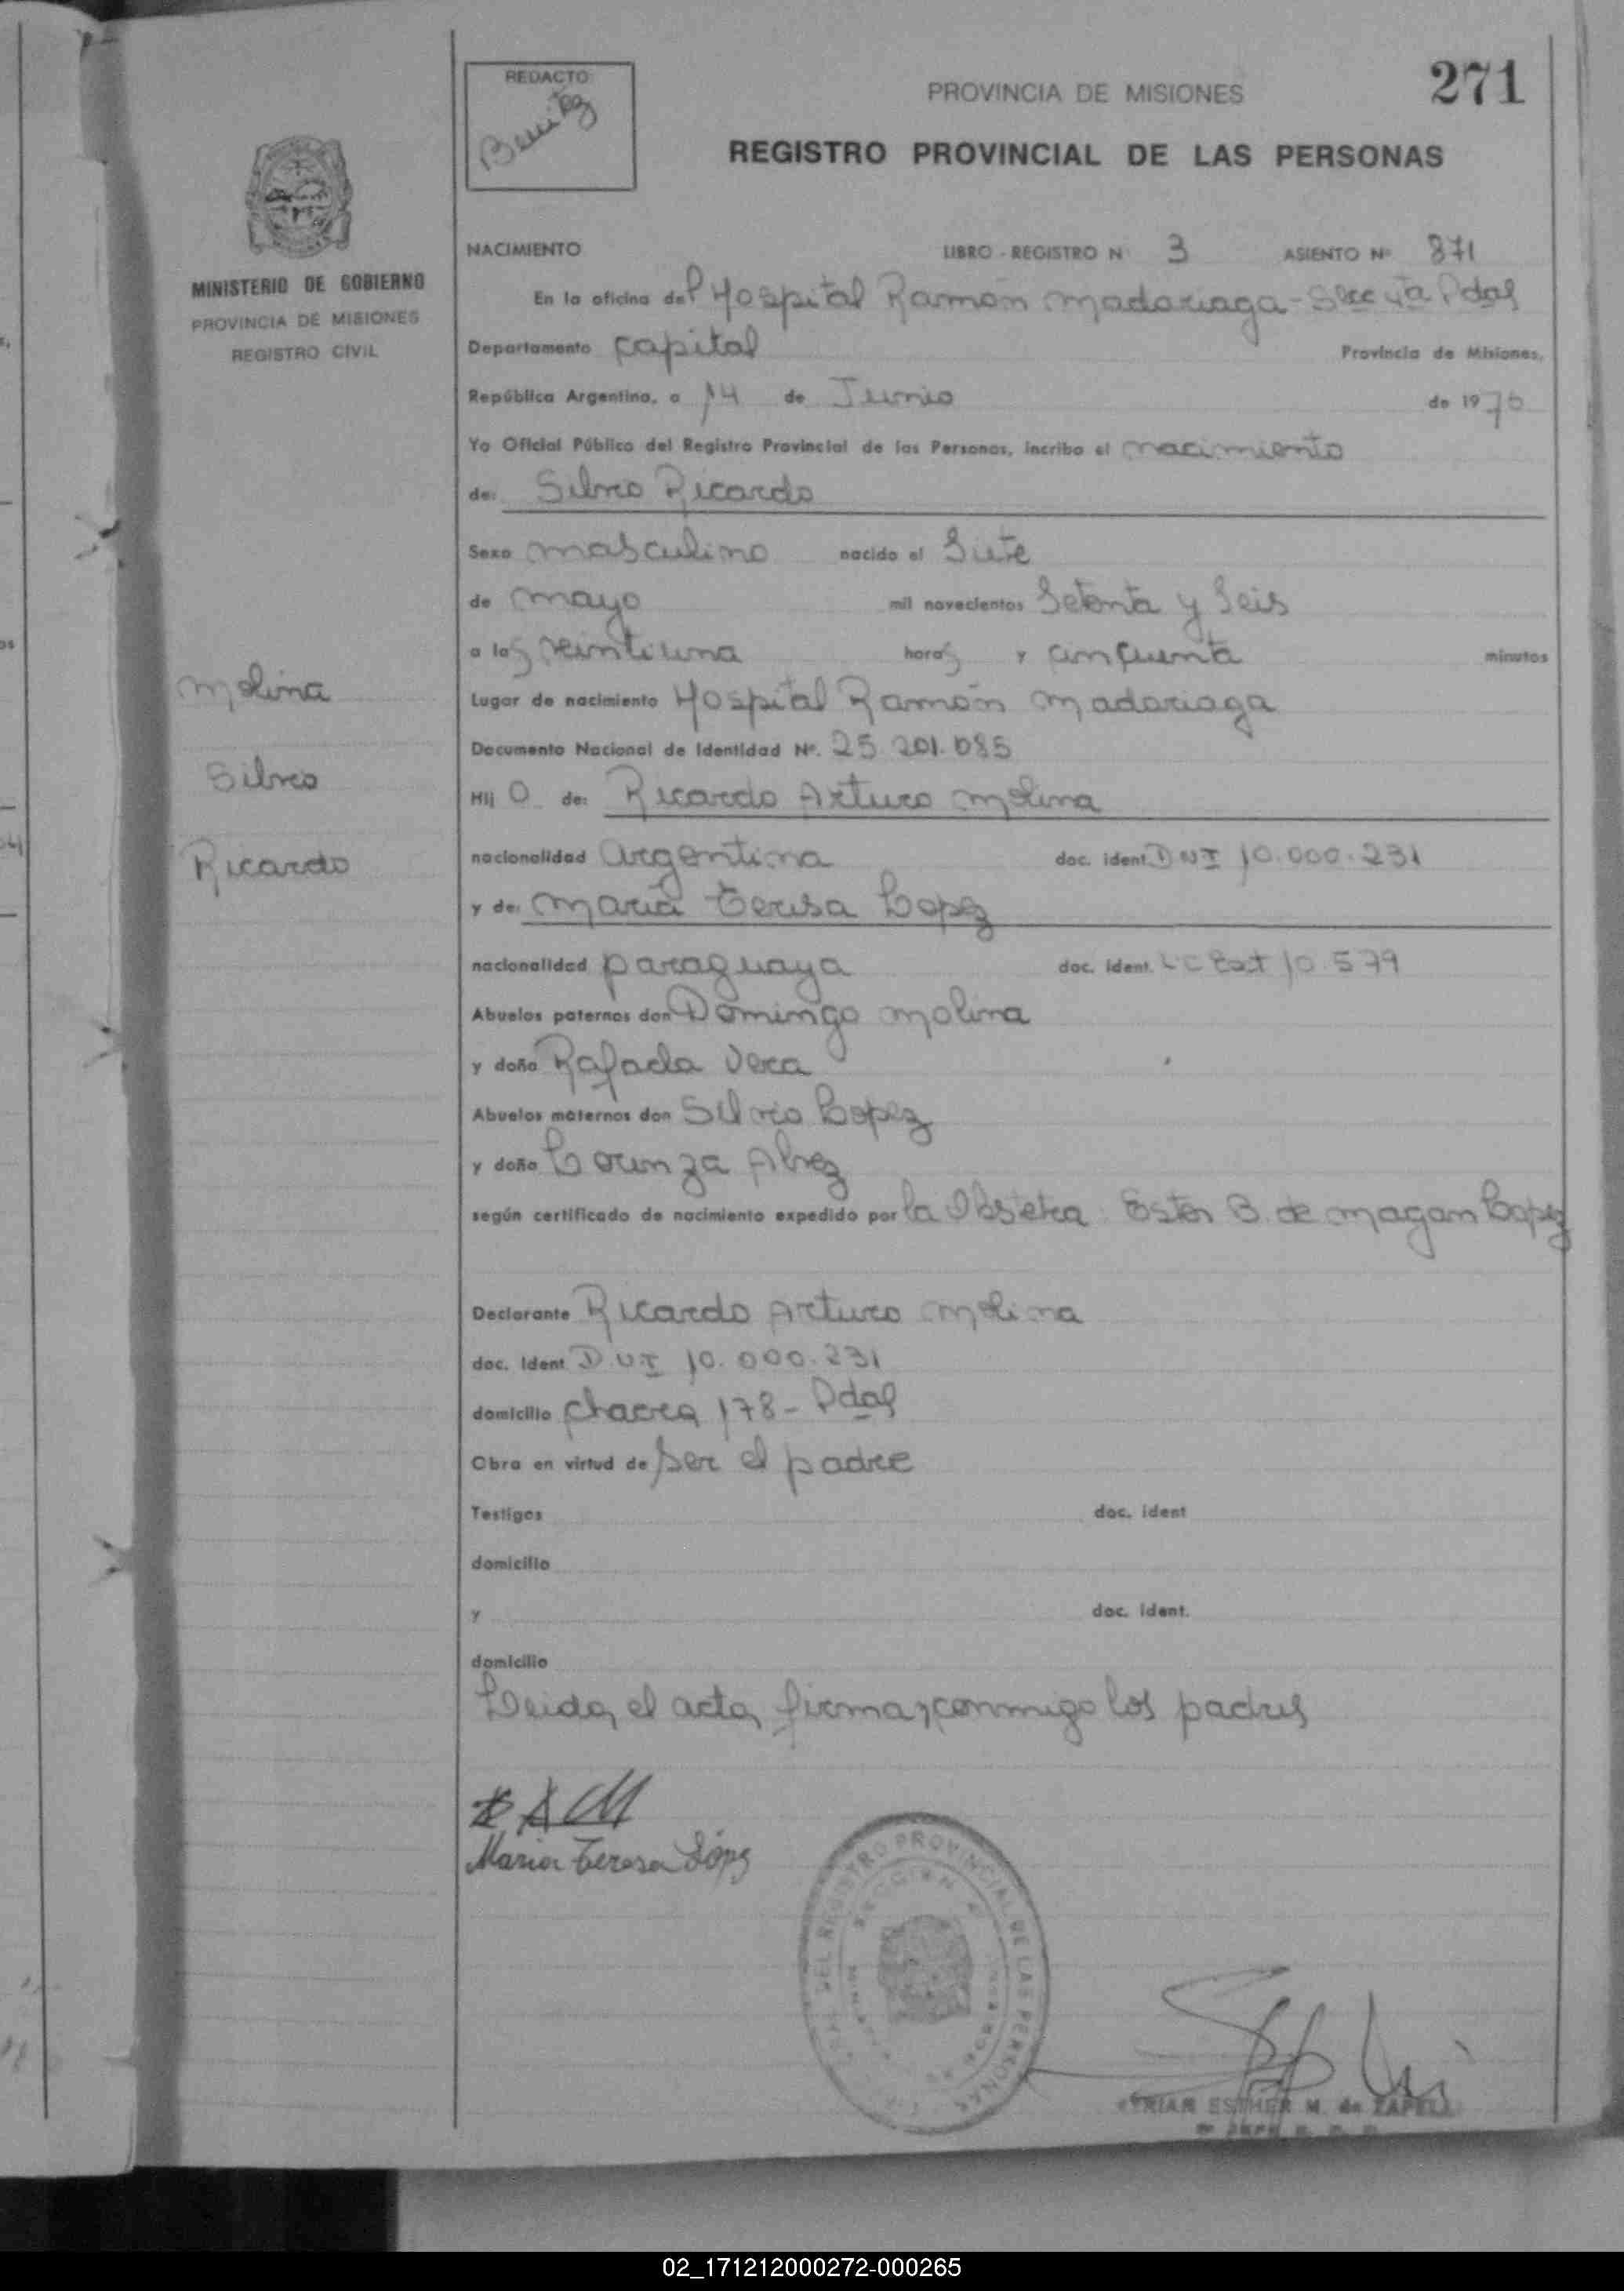 271
REDACTO
Benitez
PROVINCIA DE MISIONES
REGISTRO PROVINCIAL DE LAS PERSONAS
MINISTERIO DE GOBIERNO
PROVINCIA DE MISIONES
REGISTRO CIVIL
NACIMIENTO LIBRO - REGISTRO N° 3 ASIENTO N° 871
En la oficina del Hospital Ramón Madariaga - Secc 4ta Pdas
Departamento Capital Provincia de Misiones,
República Argentina, a 14 de Junio de 1976
Yo Oficial Público del Registro Provincial de las Personas, incribo el nacimiento
de: Silvio Ricardo
Sexo masculino nacido el Siete
de mayo mil novecientos Setenta y Seis
a las veintiuna horas y cincuenta minutos
Lugar de nacimiento Hospital Ramón Madariaga
Documento Nacional de Identidad N°. 25.201.085
Hij O de: Ricardo Arturo Molina
nacionalidad argentina doc. ident. DNI 10.000.231
y de: María Teresa Lopez
nacionalidad paraguaya doc. ident. LC Ext 10.579
Abuelos paternos don Domingo Molina
y doña Rafaela Vera
Abuelos maternos don Silvio Lopez
y doña
según certificado de nacimiento expedido por la Obstetra Ester B. de Magan Lopez
Molina
Silvio
Ricardo
Declarante Ricardo Arturo Molina
doc. Ident D.N.I 10.000.231
domicilio Chacra 178 - Pdas
Obra en virtud de ser el padre
Testigos doc. ident
domicilio
y doc. ident.
domicilio
Leida el acta, firman conmigo los padres
RAM
Maria Teresa López
DEL REGISTRO PROVINCIAL DE LAS PERSONAS
SECCION
ESTHER M. de ZAPELLI
02_171212000272-000265